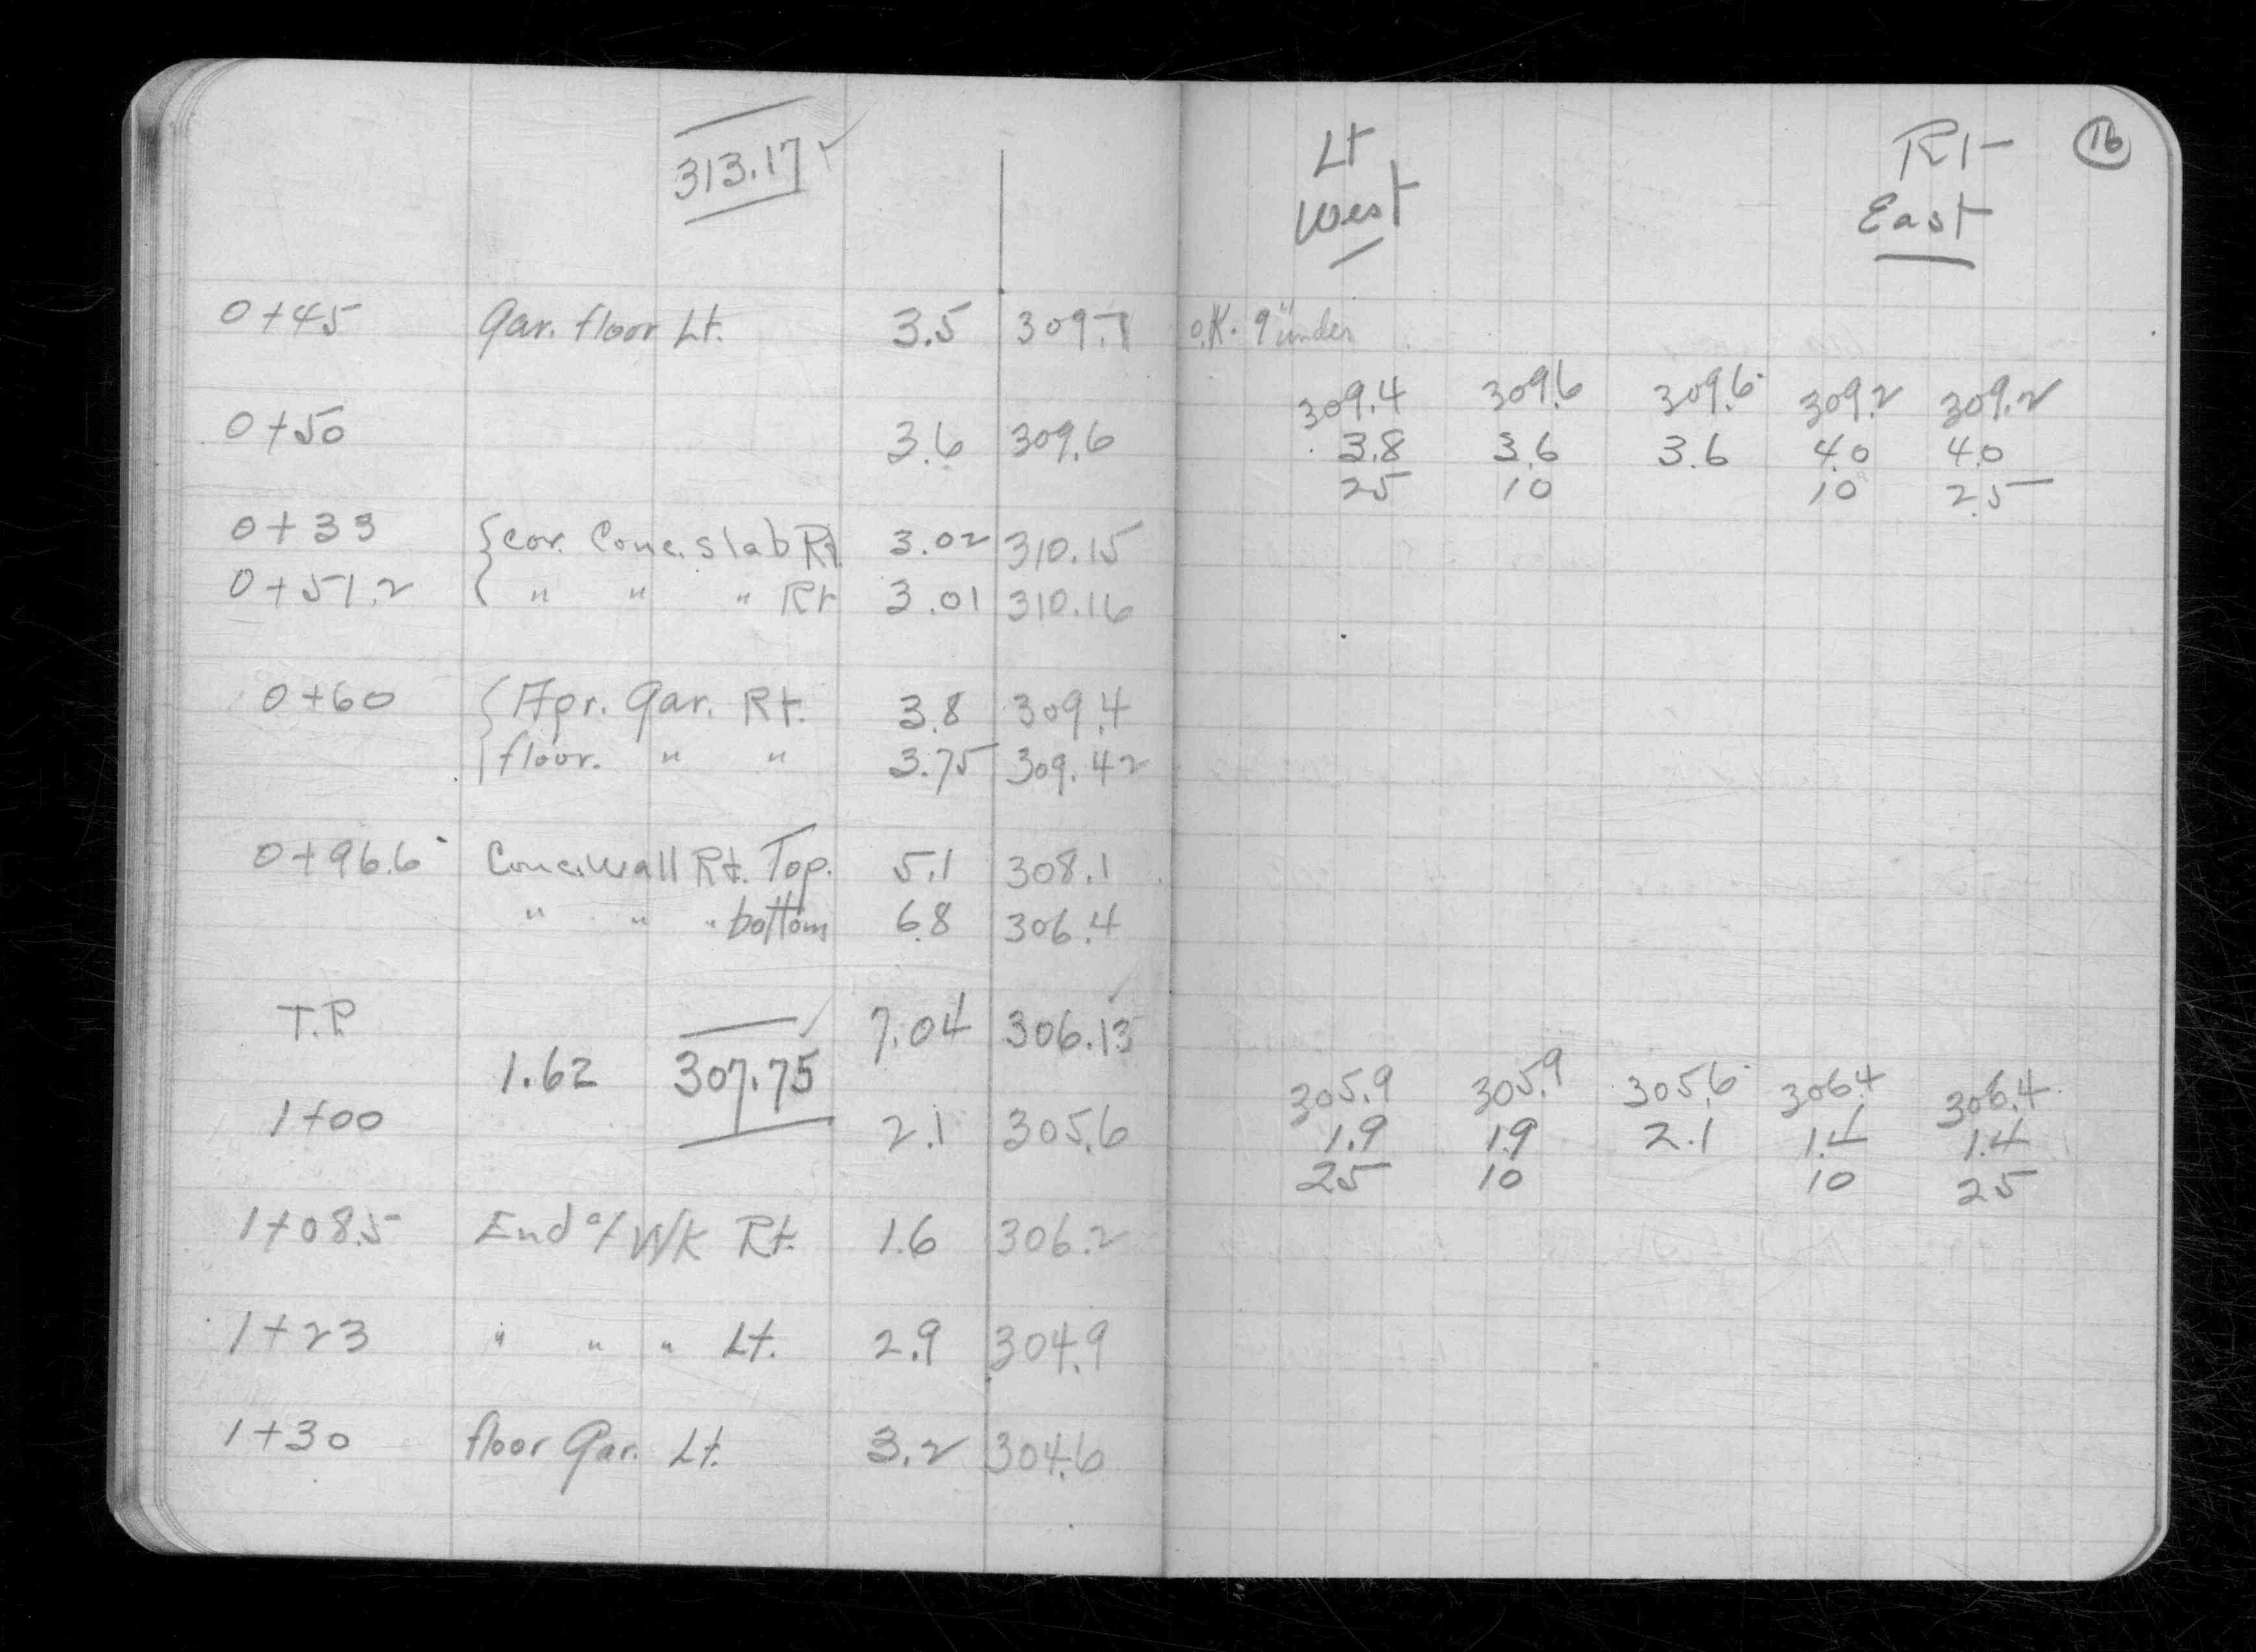 313.17 ✓
0+45 Gar. floor Lt. 3.5 309.7
0+50 3.6 309.6
0+33 {cor. Conc. slab Rt. 3.02 310.15
0+51.2 { " " " Rt 3.01 310.16
0+60 {Apr. Gar. Rt. 3.8 309.4
{floor. " " 3.75 309.42
0+96.6 Conc. Wall Rt. Top. 5.1 308.1
" " " bottom 6.8 306.4
T.P. 7.04 306.13 ✓
1.62 307.75 ✓
1+00 2.1 305.6
1+08.5 End of Wk Rt. 1.6 306.2
1+23 " " " Lt. 2.9 304.9
1+30 floor Gar. Lt. 3.2 304.6
Lt Rt 16
West East
O.K. 9" under
309.4 309.6 309.6 309.2 309.2
3.8 3.6 3.6 4.0 4.0
25 10 10 25
305.9 305.9 305.6 306.4 306.4
1.9 1.9 2.1 1.4 1.4
25 10 10 25